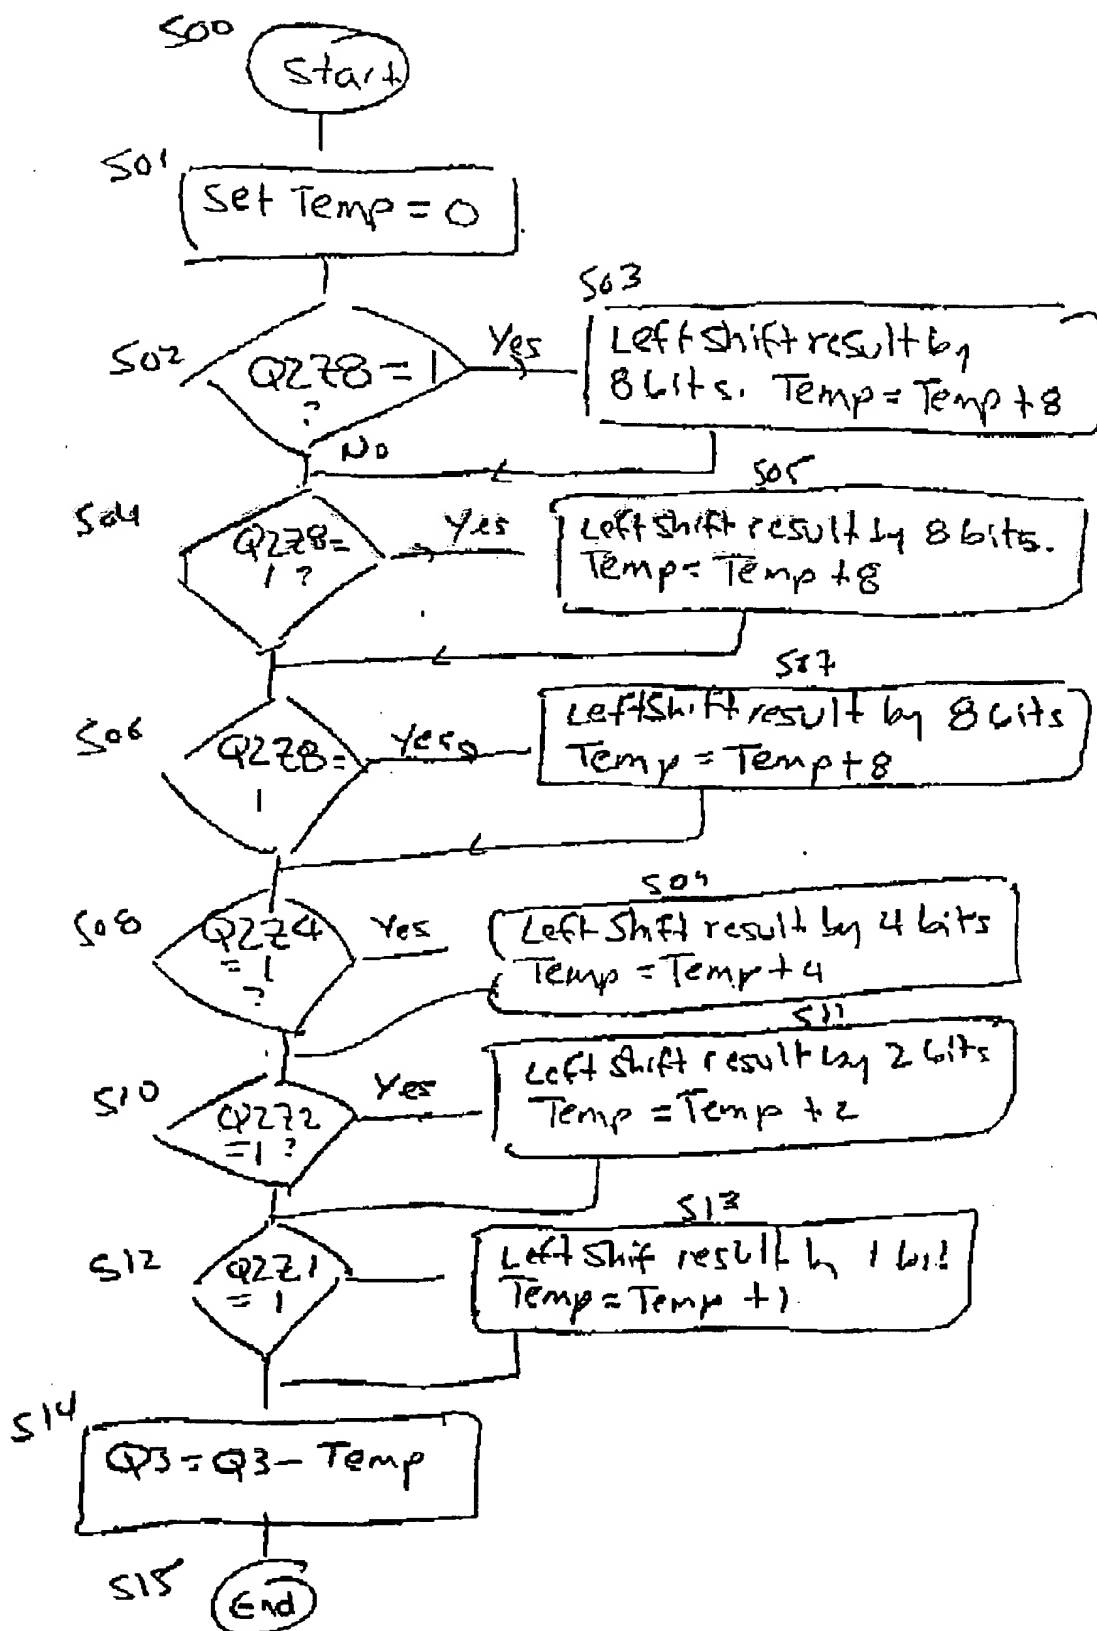 S00
Start
S01
Set Temp = 0
S02
Q2Z8 = 1
?
Yes
No
S03
Left shift result by
8 bits. Temp = Temp + 8
S04
Q2Z8 =
1 ?
Yes
S05
Left shift result by 8 bits.
Temp = Temp + 8
S06
Q2Z8 =
1
Yes
S07
Left Shift result by 8 bits
Temp = Temp + 8
S08
Q2Z4
= 1
?
Yes
S09
Left Shift result by 4 bits
Temp = Temp + 4
S10
Q2Z2
= 1 ?
Yes
S11
Left shift result by 2 bits
Temp = Temp + 2
S12
Q2Z1
= 1
S13
Left Shif result by 1 bit
Temp = Temp + 1
S14
Q3 = Q3 - Temp
S15
End